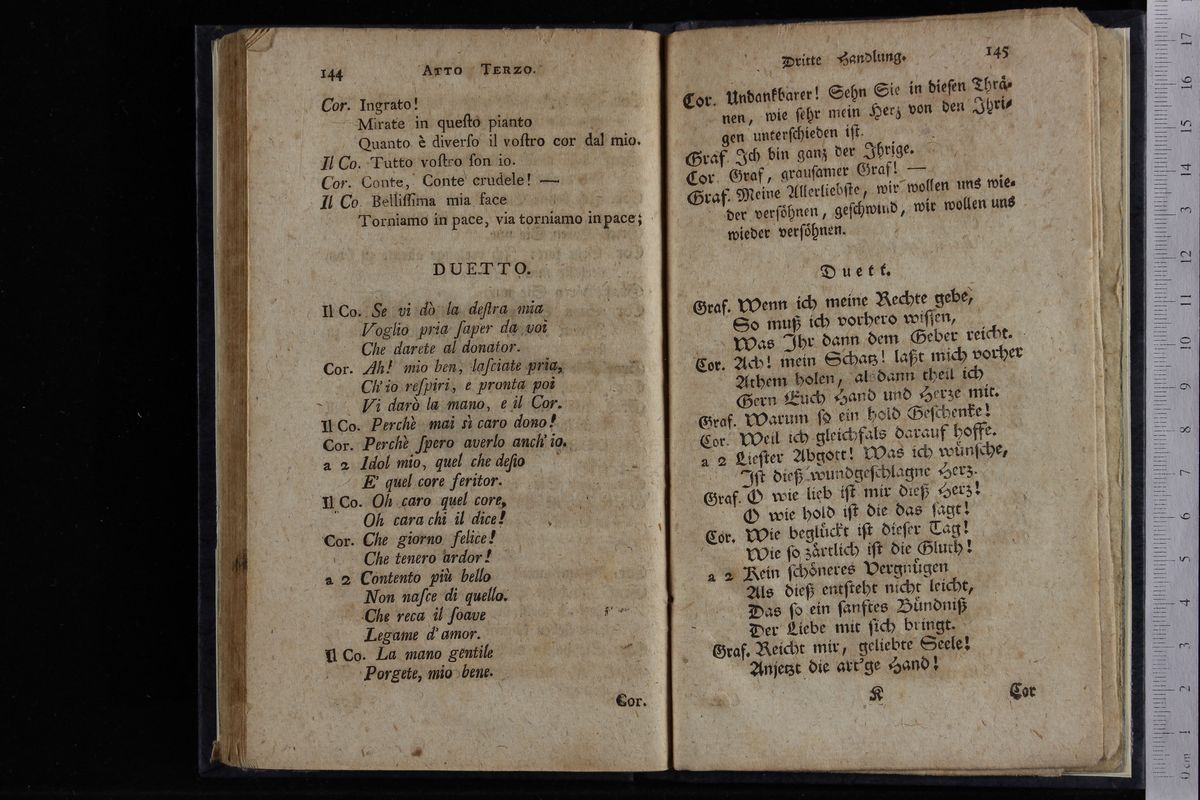 144 ATTO TERZO.
Cor. Ingrato!
Mirate in queſto pianto
Quanto è diverſo il voſtro cor dal mio.
Il Co. Tutto voſtro ſon io.
Cor. Conte, Conte crudele! —
Il Co Belliſſima mia face
Torniamo in pace, via torniamo in pace;
DUETTO.
Il Co. Se vi dò la deſtra mia
Voglio pria ſaper da voi
Che darete al donator.
Cor. Ah! mio ben, laſciate pria,
Ch'io reſpiri, e pronta poi
Vi darò la mano, e il Cor.
Il Co. Perchè mai sì caro dono!
Cor. Perchè ſpero averlo anch'io.
a 2 Idol mio, quel che deſio
E' quel core feritor.
Il Co. Oh caro quel core,
Oh cara chi il dice!
Cor. Che giorno felice!
Che tenero ardor!
a 2 Contento più bello
Non naſce di quello.
Che reca il ſoave
Legame d'amor.
Il Co. La mano gentile
Porgete, mio bene.
Cor.
Dritte Handlung. 145
Cor. Undankbarer! Sehn Sie in dieſen Thrå-
nen, wie ſehr mein Herz von den Ihri-
gen unterſchieden iſt.
Graf. Ich bin ganz der Ihrige.
Cor. Graf, grauſamer Graf! —
Graf. Meine Allerliebſte, wir wollen uns wie-
der verſöhnen, geſchwind, wir wollen uns
wieder verſöhnen.
Duett.
Graf. Wenn ich meine Rechte gebe,
So muß ich vorhero wiſſen,
Was Ihr dann dem Geber reicht.
Cor. Ach! mein Schatz! laßt mich vorher
Athem holen, alsdann theil ich
Gern Euch Hand und Herze mit.
Graf. Warum ſo ein hold Geſchenke!
Cor. Weil ich gleichfals darauf hoffe.
a 2 Lieſter Abgott! Was ich wünſche,
Iſt dieß wundgeſchlagne Herz.
Graf. O wie lieb iſt mir dieß Herz!
O wie hold iſt die das ſagt!
Cor. Wie beglückt iſt dieſer Tag!
Wie ſo zärtlich iſt die Gluth!
a 2 Kein ſchöneres Vergnügen
Als dieß entſteht nicht leicht,
Das ſo ein ſanftes Bündniß
Der Liebe mit ſich bringt.
Graf. Reicht mir, geliebte Seele!
Anjetzt die art'ge Hand!
K Cor